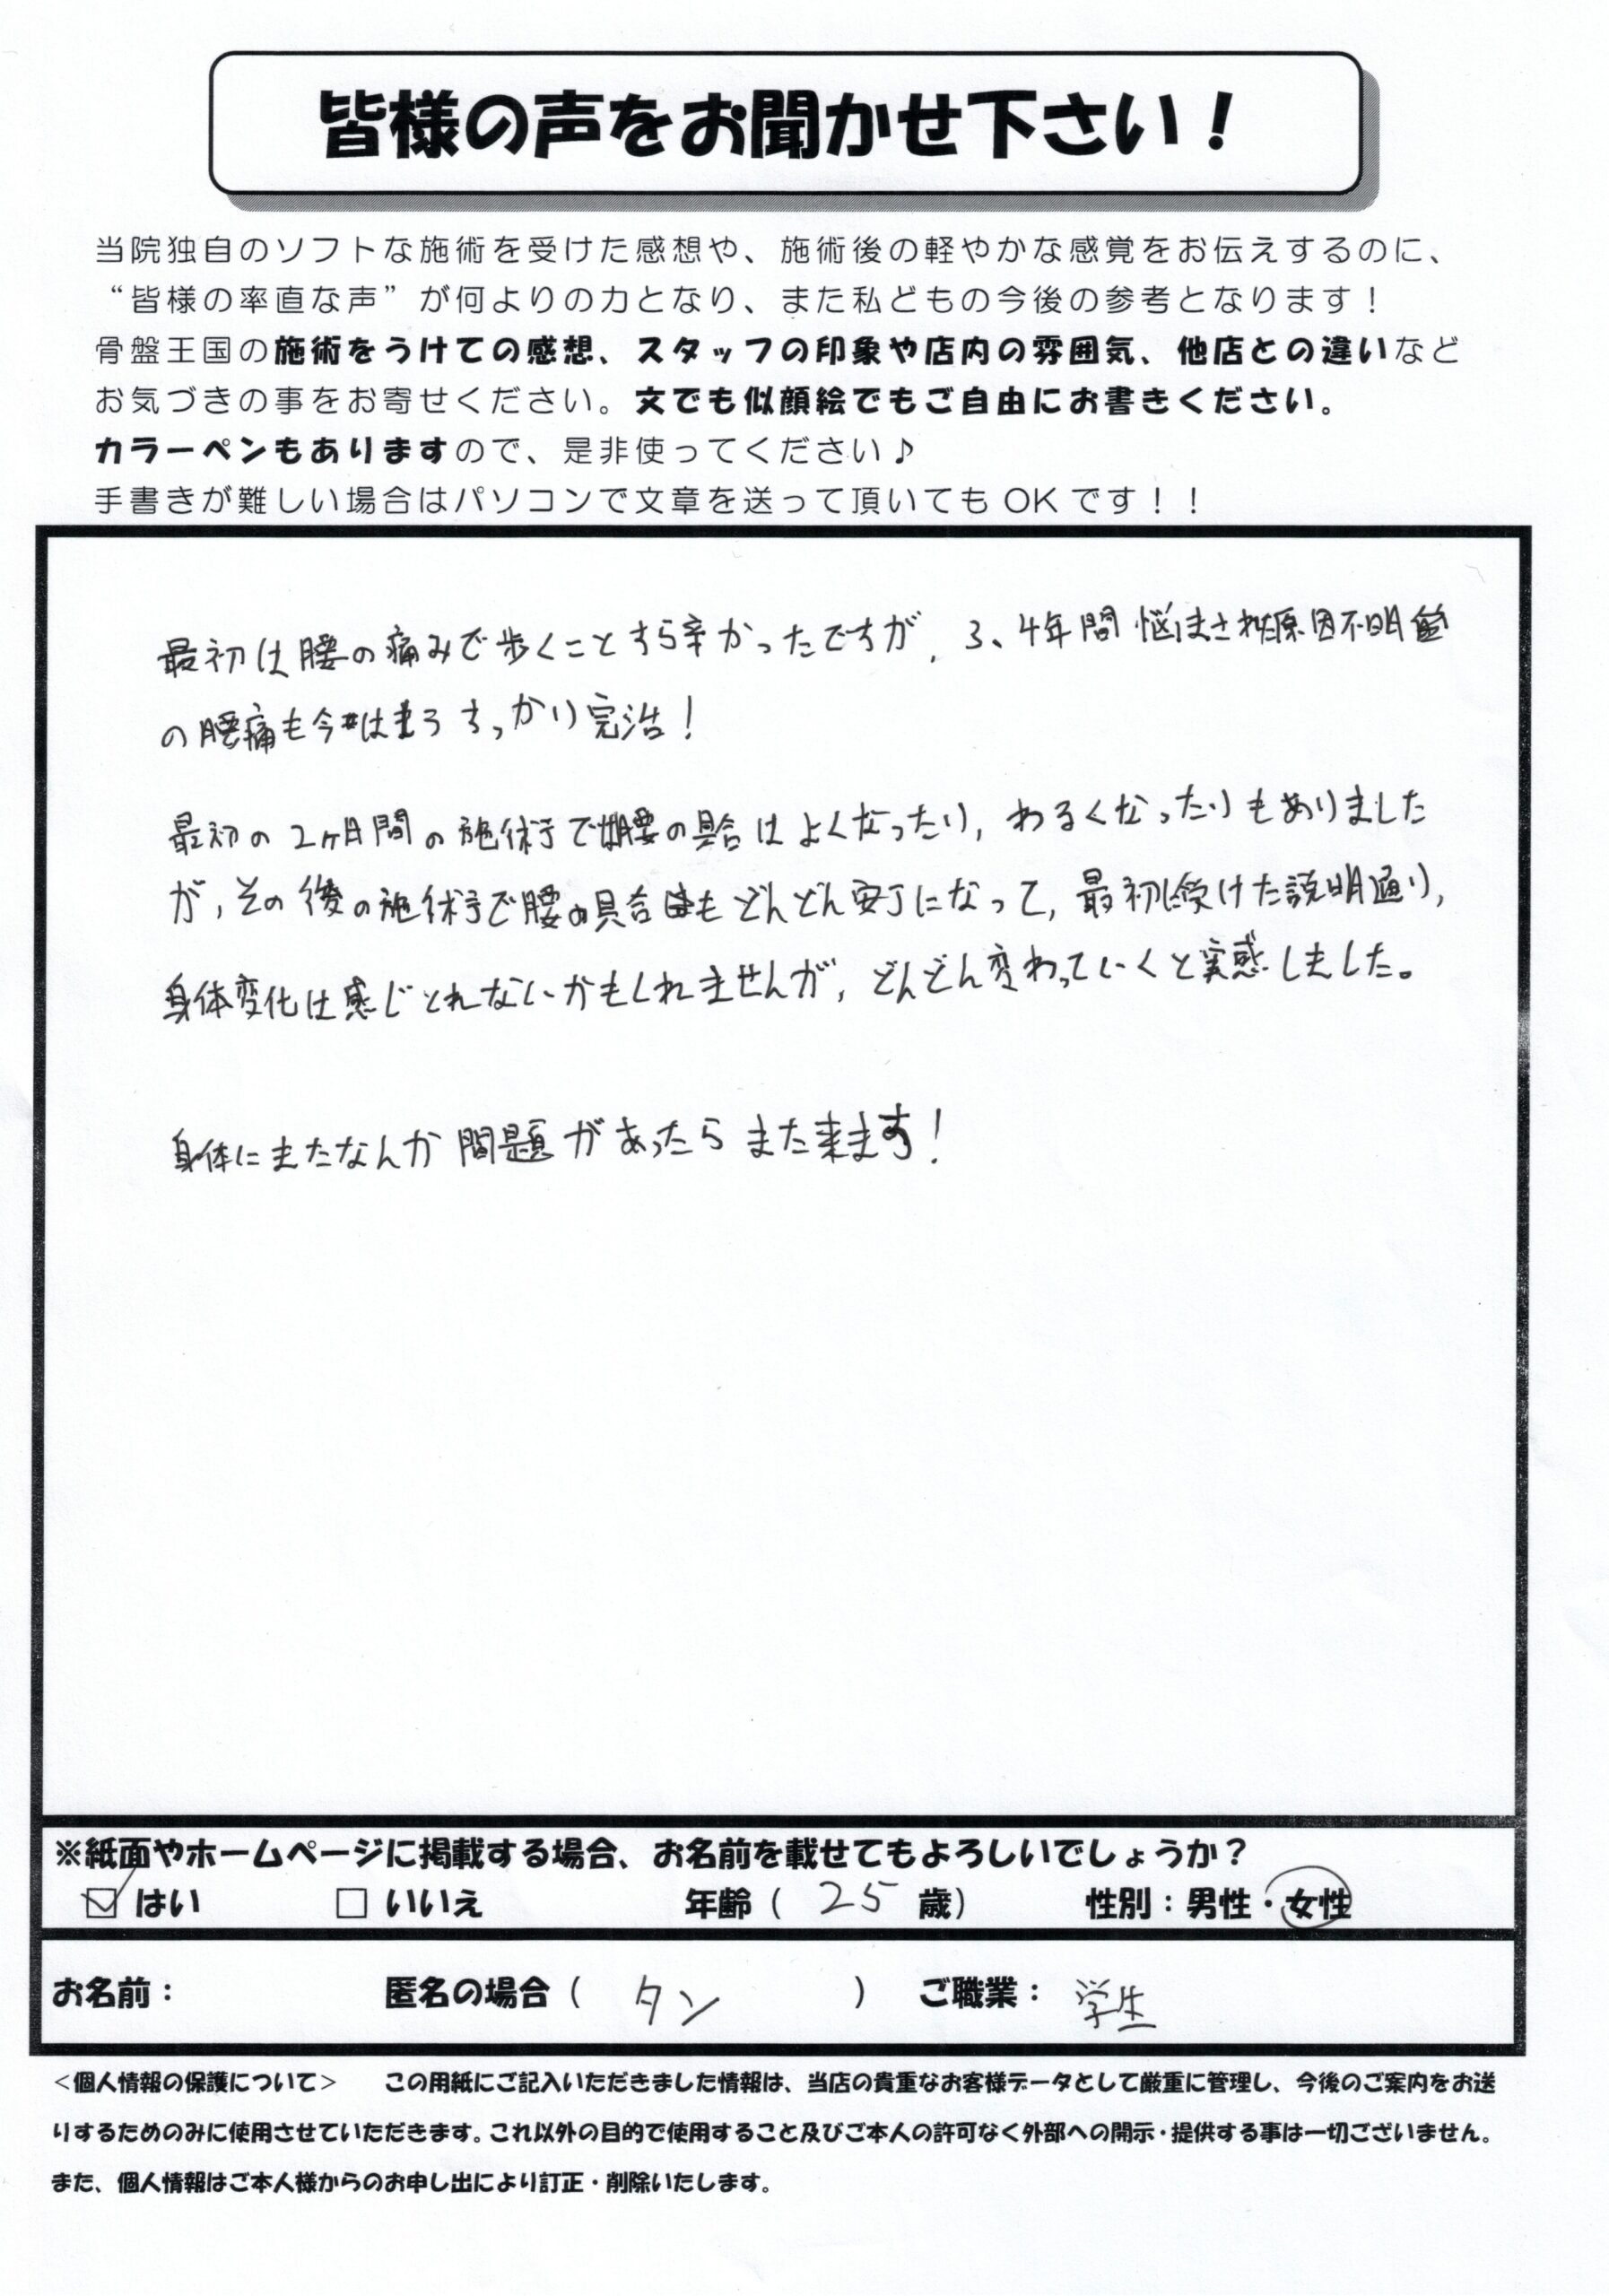 皆様の声をお聞かせ下さい！
当院独自のソフトな施術を受けた感想や、施術後の軽やかな感覚をお伝えするのに、
“皆様の率直な声”が何よりの力となり、また私どもの今後の参考となります！
骨盤王国の施術をうけての感想、スタッフの印象や店内の雰囲気、他店との違いなど
お気づきの事をお寄せください。文でも似顔絵でもご自由にお書きください。
カラーペンもありますので、是非使ってください♪
手書きが難しい場合はパソコンで文章を送って頂いてもOKです！！
最初は腰の痛みで歩くことすら辛かったですが, 3、4年間悩まされた原因不明
の腰痛も今はもうすっかり完治！
最初の2ヶ月間の施術で腰の具合はよくなったり, わるくなったりもありました
が, その後の施術で腰の具合もどんどん安丁になって, 最初に受けた説明通り,
身体変化は感じとれないかもしれませんが, どんどん変わっていくと実感しました。
身体にまたなんか問題があったらまた来ます！
※紙面やホームページに掲載する場合、お名前を載せてもよろしいでしょうか？
☑ はい □ いいえ 年齢（ 25 歳） 性別：男性・女性
お名前： 匿名の場合（ タン ） ご職業： 学生
＜個人情報の保護について＞ この用紙にご記入いただきました情報は、当店の貴重なお客様データとして厳重に管理し、今後のご案内をお送
りするためのみに使用させていただきます。これ以外の目的で使用すること及びご本人の許可なく外部への開示・提供する事は一切ございません。
また、個人情報はご本人様からのお申し出により訂正・削除いたします。